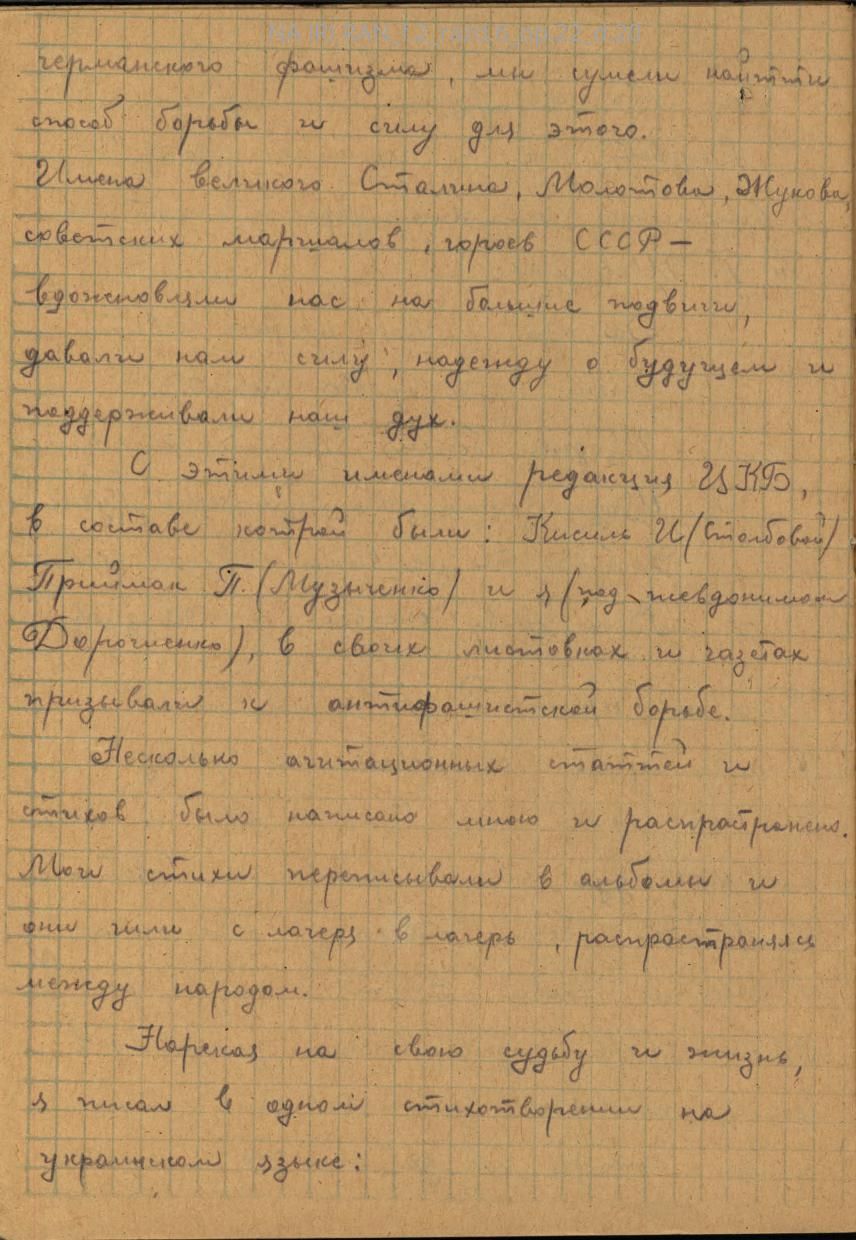 германского фашизма, мы сумели найтти
способ борьбы и силу для этого.
Имена великого Сталина, Молотова, Жукова,
советских маршалов, героев СССР —
вдохновляли нас на большие подвиги,
давали нам силу, надежду о будущем и
поддерживали наш дух.
С этими именами редакция ЦКБ,
в составе которой были: Кисиль И (Столбовой)
Приймак П. (Музыченко) и я (под псевдонимом
Дорошенко), в своих листовках и газетах
призывали к антифашистской борьбе.
Несколько агитационных статтей и
стихов было написано мною и распространено.
Мои стихи переписывали в альбомы и
они шли с лагеря в лагерь, распространяясь
между народом.
Нарекая на свою судьбу и жизнь,
я писал в одном стихотворении на
украинском языке: